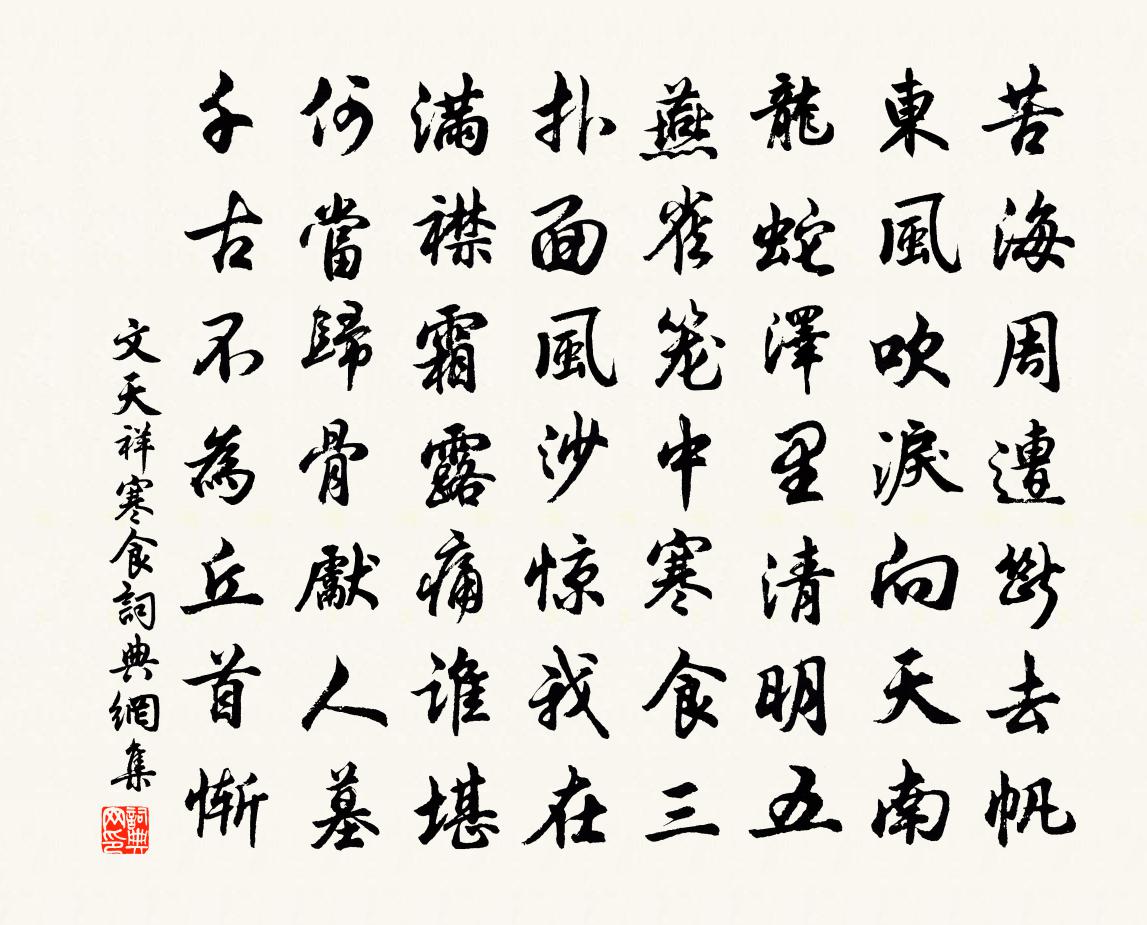 苦海周遭斷去帆
東風吹淚向天南
龍蛇澤里清明五
燕雀笼中寒食三
扑面風沙惊我在
滿襟霜露痛谁堪
何當歸骨獻人墓
千古不為丘首慚
文天祥寒食詞典網集
詞典网印